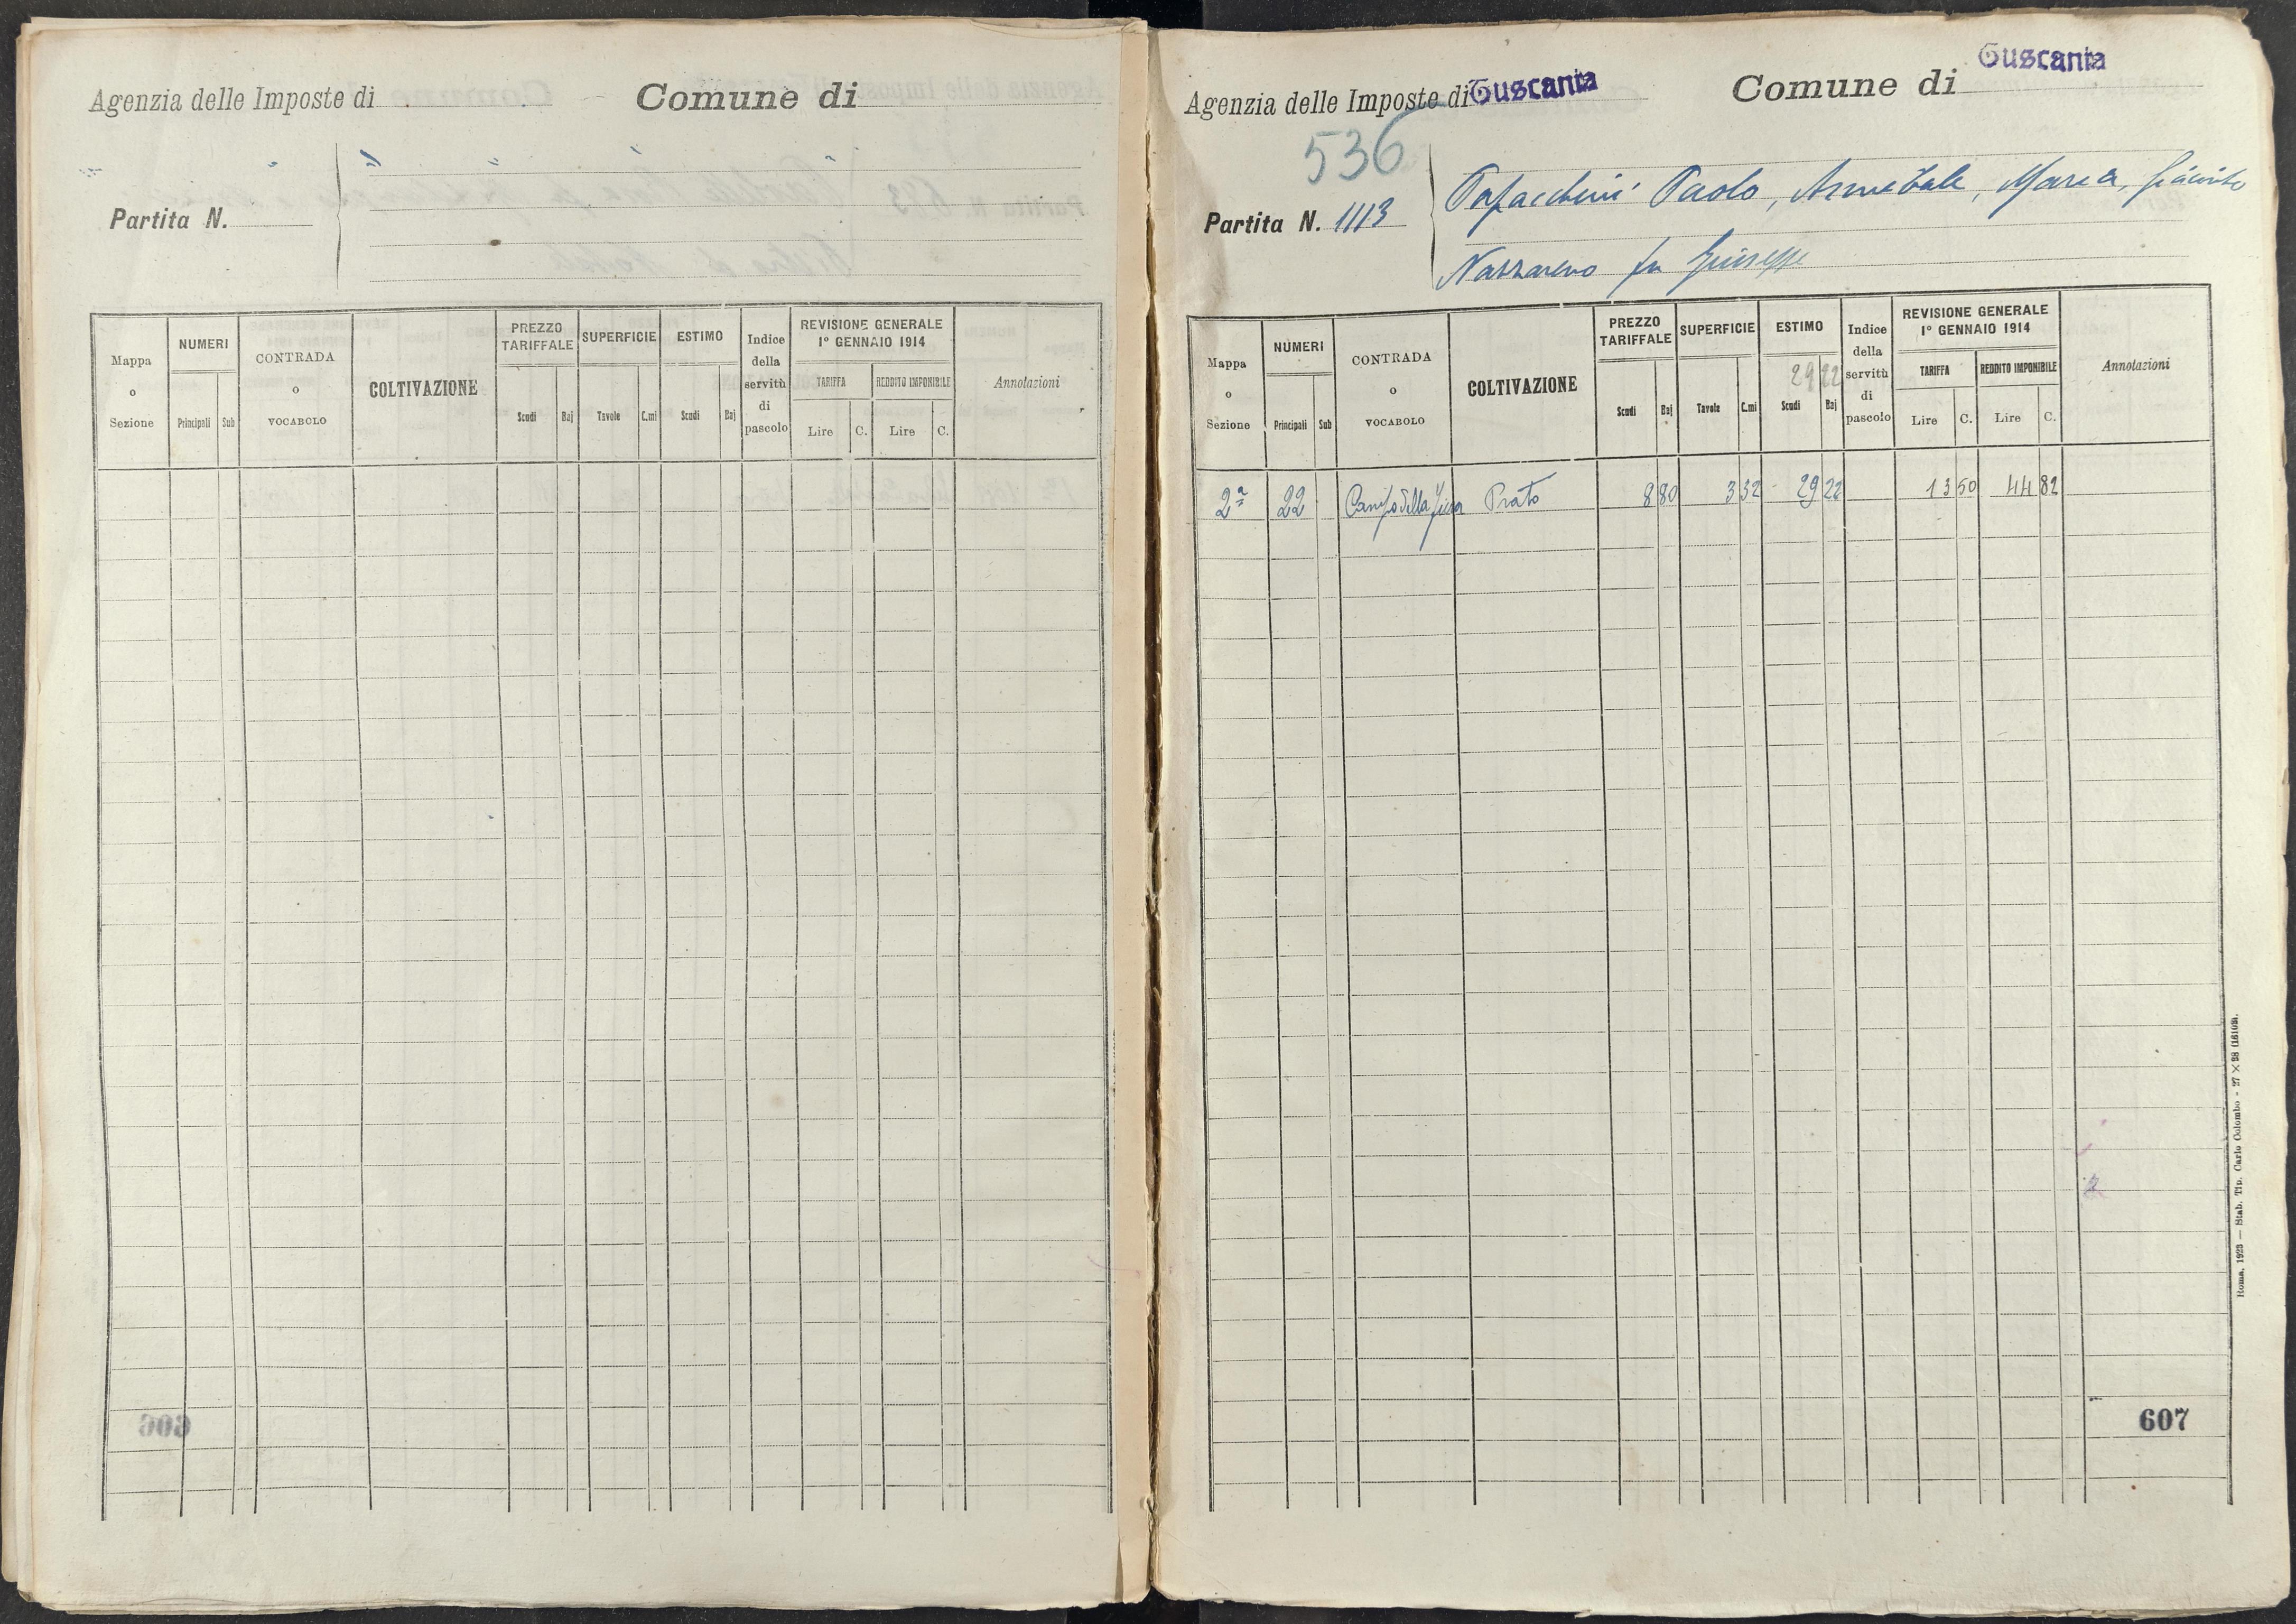 Agenzia delle Imposte di Comune di
Partita N.
Mappa o Sezione
NUMERI
Principali Sub
CONTRADA o VOCABOLO
COLTIVAZIONE
PREZZO TARIFFALE
Scudi Baj
SUPERFICIE
Tavole C.mi
ESTIMO
Scudi Baj
Indice della servitù di pascolo
REVISIONE GENERALE
1° GENNAIO 1914
TARIFFA REDDITO IMPONIBILE
Lire C. Lire C.
Annotazioni
Agenzia delle Imposte di Tuscania Comune di Tuscania
536
Partita N. 1113
Paolo, Annibale, Maria, Giacinto
Nazzareno fu Giuseppe
Mappa o Sezione
NUMERI
Principali Sub
CONTRADA o VOCABOLO
COLTIVAZIONE
PREZZO TARIFFALE
Scudi Baj
SUPERFICIE
Tavole C.mi
ESTIMO
29 22
Scudi Baj
Indice della servitù di pascolo
REVISIONE GENERALE
1° GENNAIO 1914
TARIFFA REDDITO IMPONIBILE
Lire C. Lire C.
Annotazioni
2ª 22 Campo della fiera Prato 8 80 3 32 29 22 13 50 44 82
607
Roma, 1923 — Stab. Tip. Carlo Colombo - 27 × 28